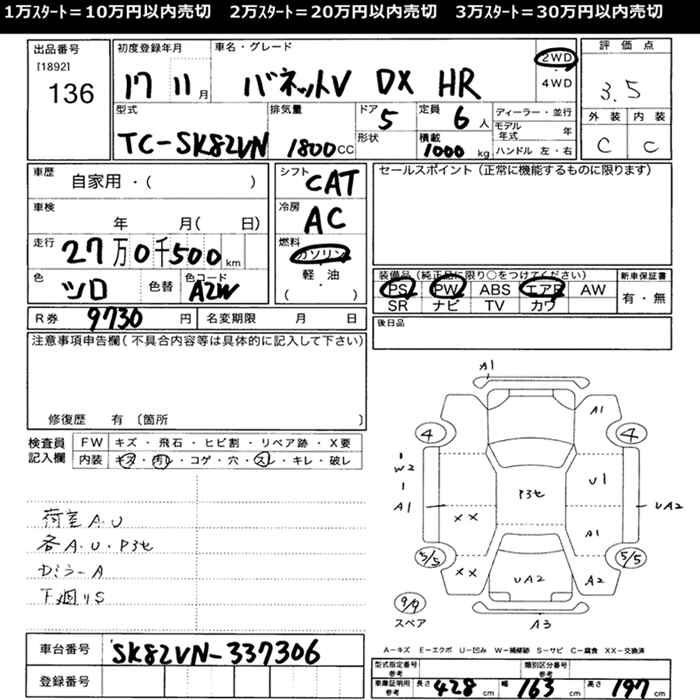 1万スタート＝10万円以内売切　2万スタート＝20万円以内売切　3万スタート＝30万円以内売切
出品番号
[1892]
136
初度登録年月
17 11月
車名・グレード
バネットV DX HR
2WD
・
4WD
評価点
3.5
外装 内装
C C
型式
TC-SK82VN
排気量
1800CC
ドア
5
形状
定員
6人
積載
1000kg
ディーラー・並行
モデル年式 年
ハンドル 左・右
車歴
自家用・( )
車検
年 月( 日)
走行
27万0千500km
色
シロ
色替
色コード
A2W
シフト
CAT
冷房
AC
燃料
ガソリン
軽・油
( )
セールスポイント（正常に機能するものに限ります）
装備品（純正品に限り○をつけてください）
PS PW ABS エアB AW
SR ナビ TV カワ
新車保証書
有・無
R券 9730円
名変期限 月 日
後日品
注意事項申告欄(不具合内容等は具体的に記入して下さい)
修復歴 有〔箇所 〕
検査員記入欄
FW キズ・飛石・ヒビ割・リペア跡・X要
内装 キズ・汚レ・コゲ・穴・スレ・キレ・破レ
荷室A.U
各A.U・Pヨセ
Dミラ-A
下廻りS
A1
A1
4 4
W2
A1
Pヨセ
U1
UA2
XX
A1
5/5 5/5
XX
UA2
A2
9/9
スペア
A3
A－キズ E－エクボ U－凹み W－補修跡 S－サビ C－腐食 XX－交換済
車台番号
SK82VN-337306
登録番号
型式指定番号
参考
類別区分番号
参考
車庫証明用
参考
長さ 428cm 幅 163cm 高さ 197cm